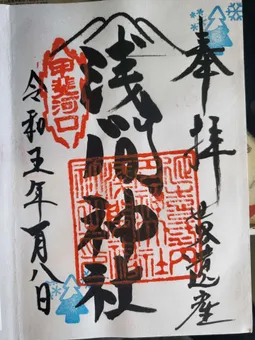 奉拝
世界遺産
浅間神社
甲斐河口
令和五年一月八日